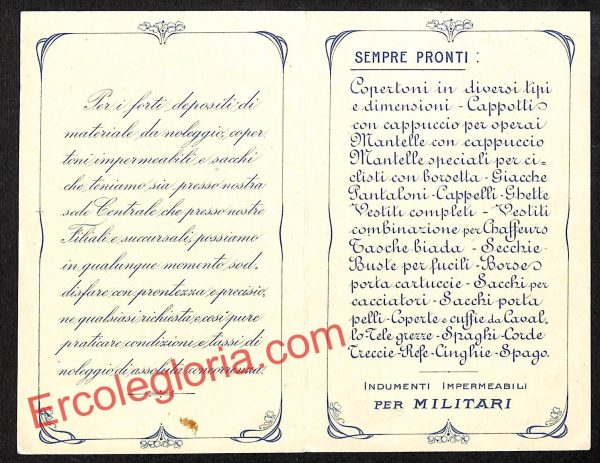 Per i forti depositi di
materiale da noleggio, coper-
toni impermeabili e sacchi
che teniamo, sia presso nostra
sede Centrale, che presso nostre
Filiali e succursali, possiamo
in qualunque momento sod-
disfare con prontezza e precisio-
ne qualsiasi richiesta, e così pure
praticare condizioni e tassi di
noleggio di assoluta concorrenza.
SEMPRE PRONTI :
Copertoni in diversi tipi
e dimensioni - Cappotti
con cappuccio per operai
Mantelle con cappuccio
Mantelle speciali per ci-
clisti con borsetta - Giacche
Pantaloni - Cappelli - Ghette
Vestiti completi - Vestiti
combinazione per Chaffeurs
Tasche biada - Secchie
Buste per fucili - Borse
porta cartuccie - Sacchi per
cacciatori - Sacchi porta
pelli - Coperte e cuffie da Caval-
lo - Tele grezze - Spaghi - Corde
Treccie - Refe - Cinghie - Spago.
INDUMENTI IMPERMEABILI
PER MILITARI
Ercolegloria.com